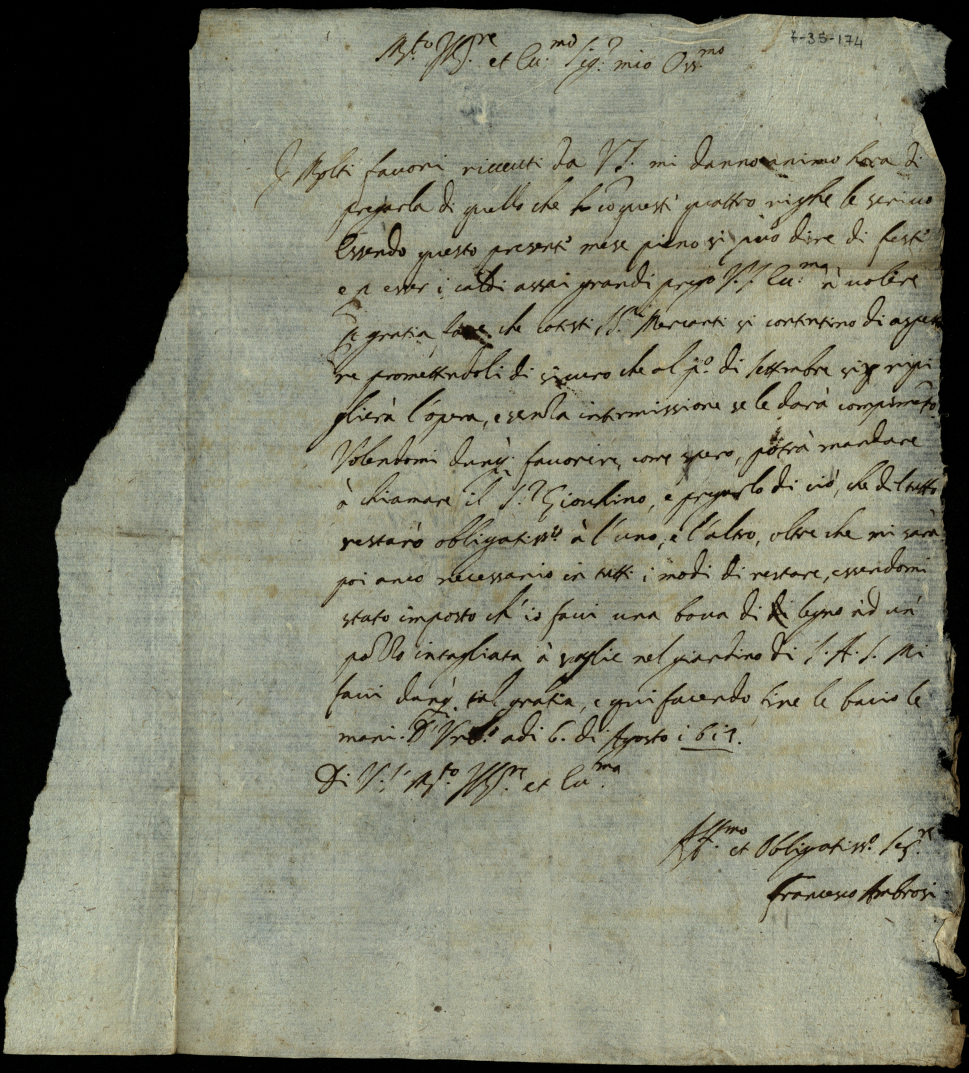 7-35-174
M.to Ill.re et Ecc.mo Sig.r mio Oss.mo
I Molti favori riceuti da V.S. mi danno animo hora di
pregarla di quello che hò cò questi quattro righe le scrivo
Essendo questo presenti mese pieno si può dire di festi
e p esser i caldi assai grandi prego V.S. Ecc.ma à volere
p gratia fare che cotesti SS.ri Mercanti si contentino di aspetta
re promettendoli di sicuro che al p.o di settembre si ripi
glierà l'opera, e senza intermissione se le darà compimèto.
Volendomi dunq. favorire, come spero, potrà mandare
à chiamare il S.r Giochino, e pregarlo di ciò, che del tutto
restarò obligatiss.o à l'uno, e l'altro, oltre che mi sarà
poi anco necessario in tutti i modi di restare, essendomi
stato imposto ch'io facci una bova di di legno ad un
pozzo intagliata à foglie nel giardino di S.A.S. Mi
facci dunq. tal gratia, e qui facendo fine le bacio le
mani. D'Urb.o adi 6. di Agosto 1617.
Di V.S. M.to Ill.re et Ecc.ma
Aff.mo et Obligatiss.o Ser.re
Francesco Ambrosi